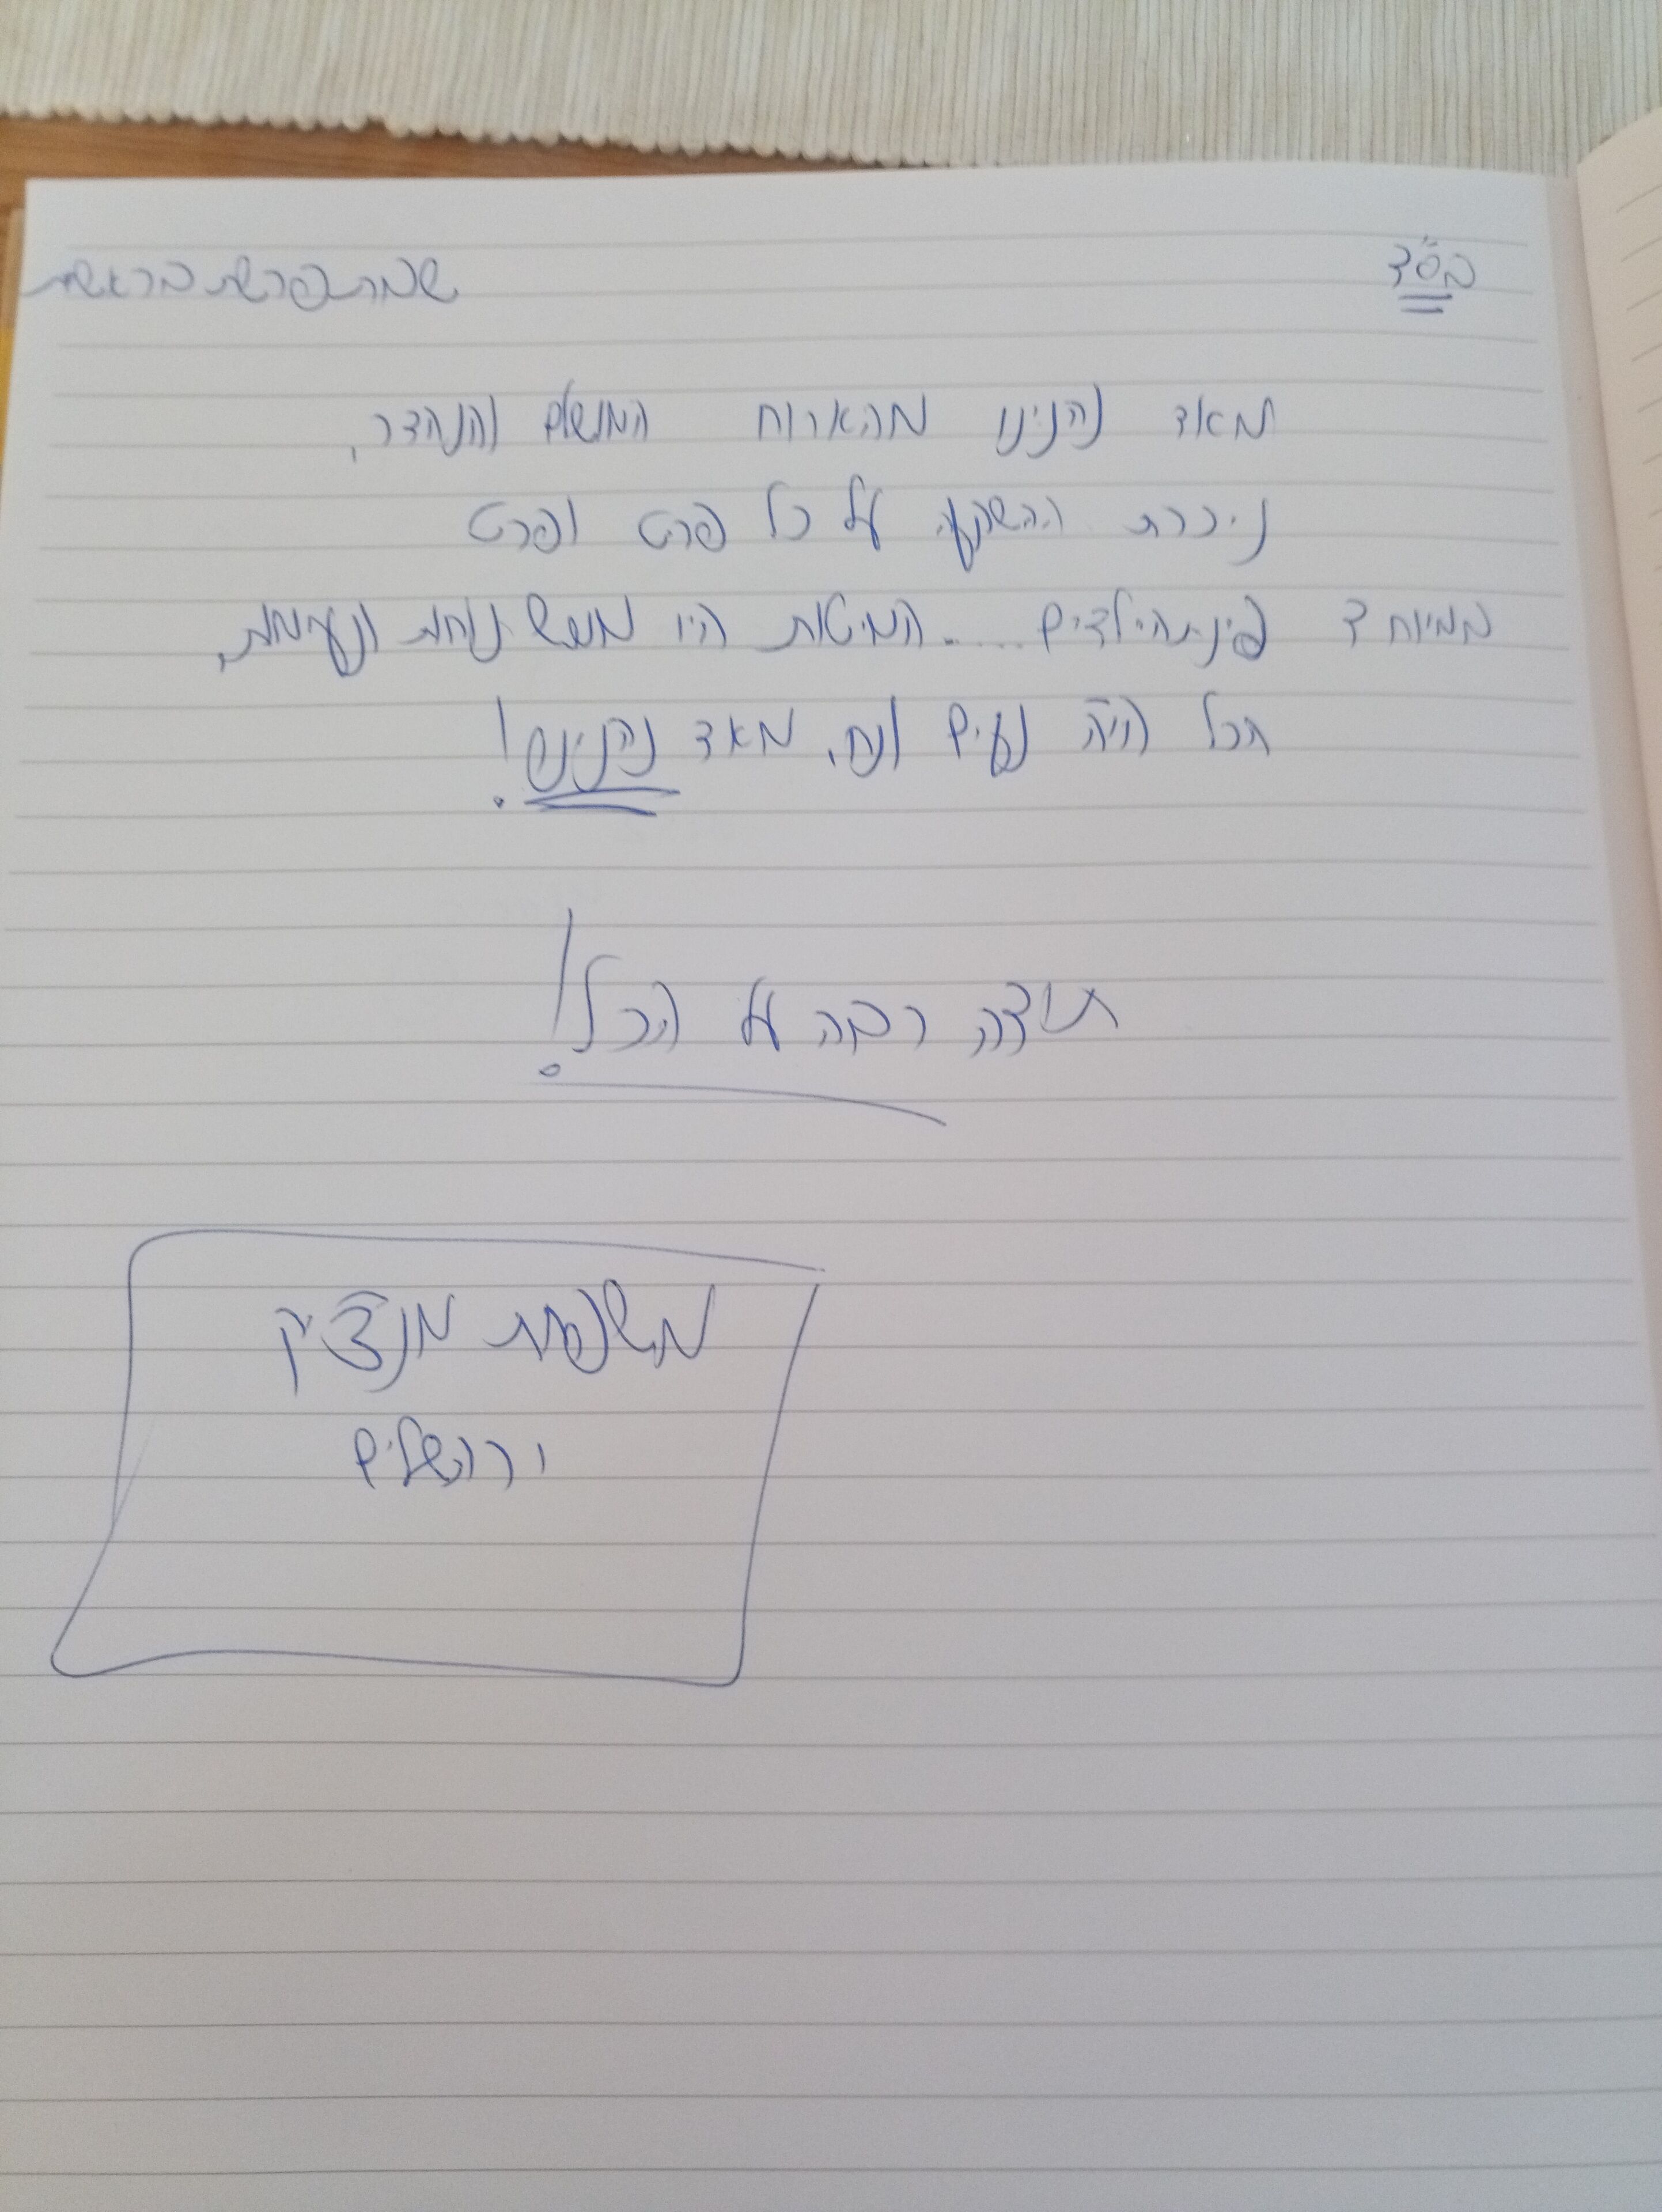 בס"ד
שבת פרשת בראשית
מאד נהנינו מהארוח המושלם והנהדר,
ניכרת ההשקעה על כל פרט ופרט
במיוחד פינת הילדים..... המיטות היו ממש נוחות ונעימות,
הכל היה נעים ונח, מאד נהנינו!
תודה רבה על הכל!
משפחת מנצ'יק
ירושלים